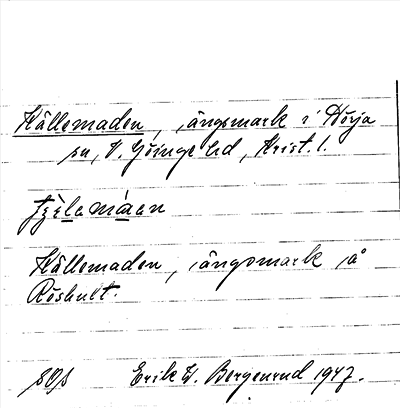 Källemaden, ängsmark i Nörja
sn, V. Göinge hd, Krist. l.
Källemaden, ängsmark på
Röshult.
Erik W. Bergenrud 1947.